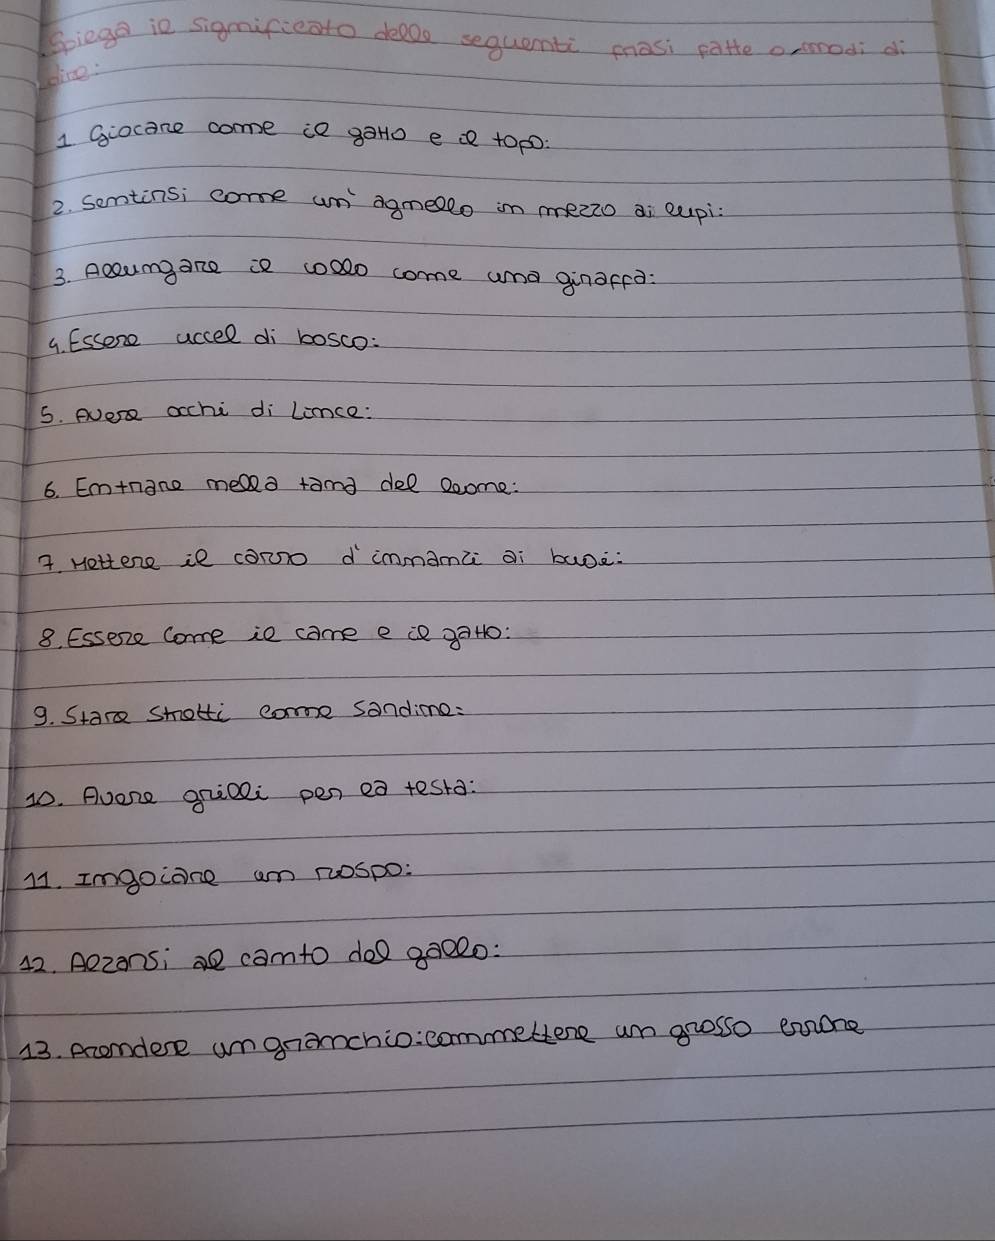 Spiega il significato delle seguenti frasi fatte o modi di
dire:
1 Giocare come il gatto e il topo:
2. Sentirsi come un' agnello in mezzo ai lupi:
3. Allungare il collo come una giraffa:
4. Essere uccel di bosco:
5. Avere occhi di Lince:
6. Entrare nella tana del leone:
7. Mettere il carro d'innanzi ai buoi:
8. Essere Come il cane e il gatto:
9. Stare Stretti come Sardine:
10. Avere grilli per la testa:
11. Ingoiare un rospo:
12. Alzarsi al canto del gallo:
13. Prendere un granchio: commettere un grosso errore